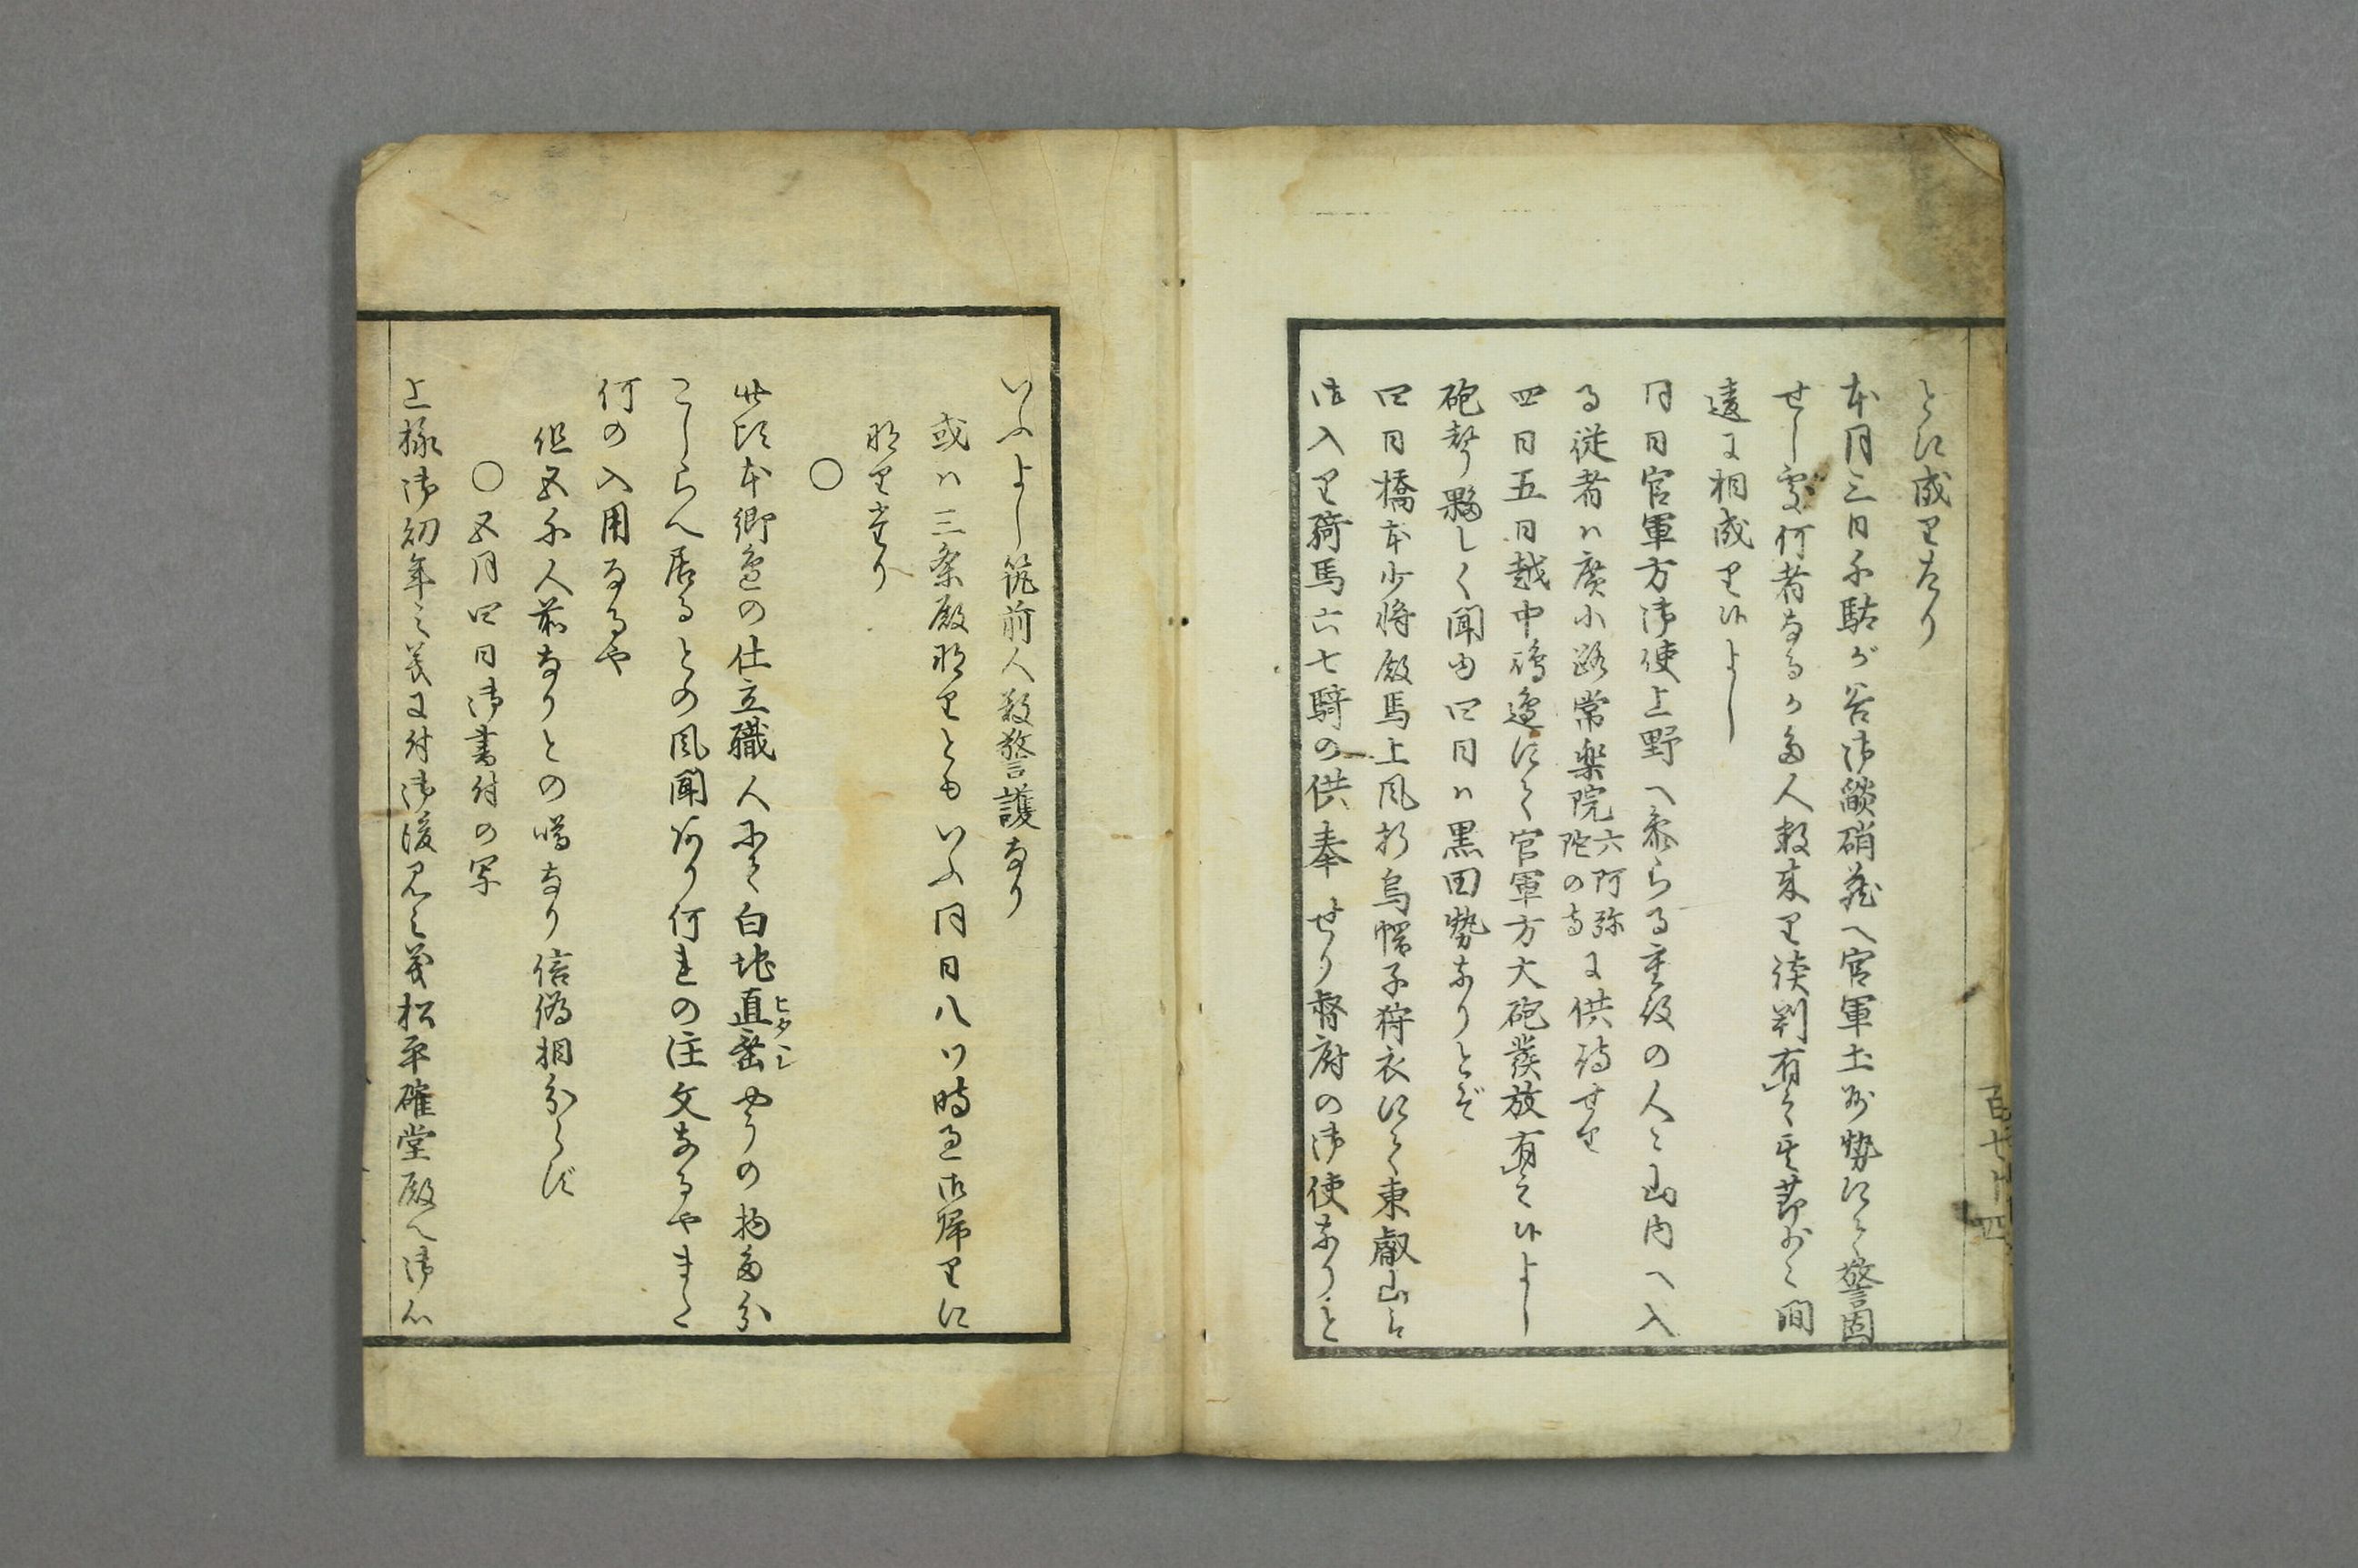 とに成りたり
本月三日千駄が谷御焔硝蔵へ官軍土州勢にて警固
せし処何者なるか多人数来り談判有之其節少々間
違に相成り候よし
同日官軍方御使上野へ参らる重役の人々山内へ入
る従者ハ廣小路常楽院六阿弥陀の寺に供待せり
四日五日越中嶋邉にて官軍方大砲發放有之候よし
砲聲夥しく聞ゆ四日ハ黒田勢なりとぞ
四日橋本少将殿馬上風折烏帽子狩衣にて東叡山に
御入り騎馬六七騎の供奉せり督府の御使なりと
いふよし筑前人数警護なり
或ハ三条殿なりともいふ同日八ツ時過御帰りに
なりたり
〇
此頃本郷邉の仕立職人にて白地直垂やうの物多分
こしらへ居るとの風聞あり何れの注文なるやまた
何の入用なるや
但五千人前なりとの噂なり信偽相分らず
〇五月四日御書付の写
上様御幼年之義に付御後見之義松平確堂殿へ御心
百七十四
ヒタヽレ